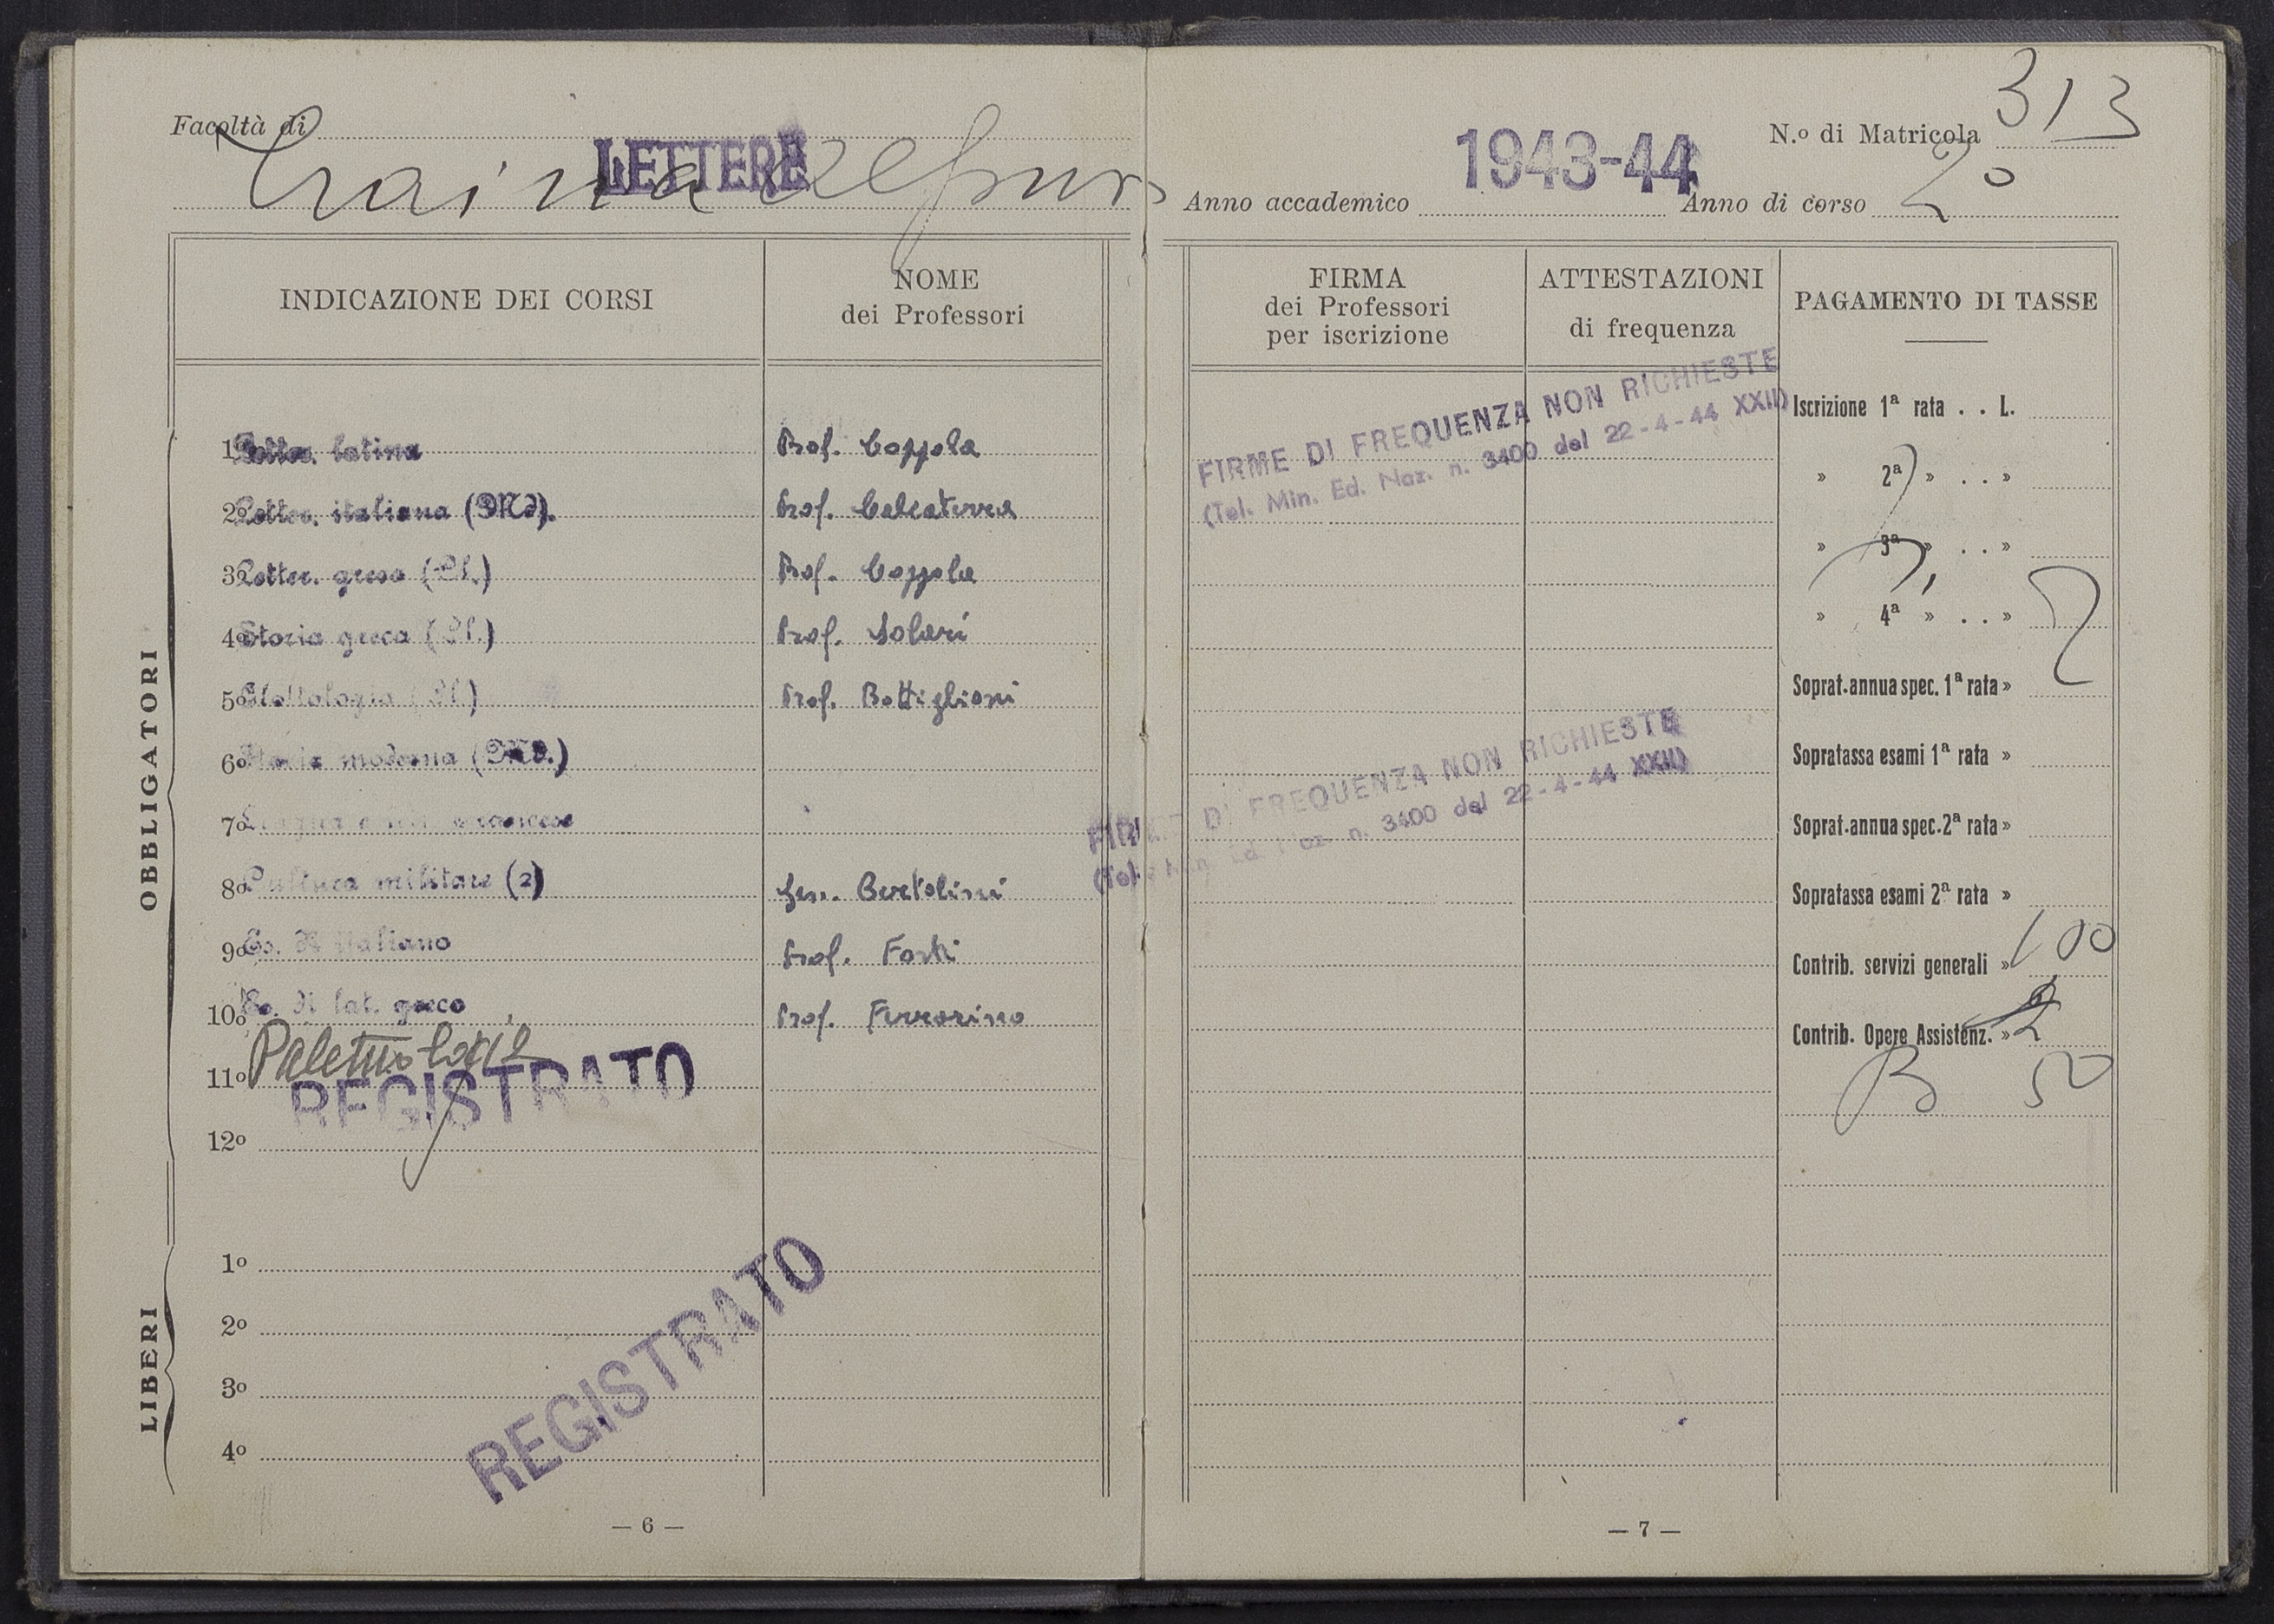 Facoltà di
LETTERE
Traina Alfonso
INDICAZIONE DEI CORSI
NOME
dei Professori
OBBLIGATORI
1º Letter. latina Prof. Coppola
2º Letter. italiana (Md). Prof. Calcaterra
3º Letter. greca (Cl.) Prof. Coppola
4º Storia greca (Cl.) Prof. Solari
5º Glottologia (Cl) Prof. Bottiglioni
6º Storia moderna (Md.)
7º Lingua francese
8º Cultura militare (2) Gen. Bertolini
9º Es. di italiano Prof. Forti
10º Es. di lat. greco Prof. Ferrarino
11º Paletnologia
REGISTRATO
12º
LIBERI
1º
2º
3º
4º
REGISTRATO
— 6 —
N.º di Matricola 313
1943-44
Anno accademico Anno di corso 2º
FIRMA
dei Professori
per iscrizione
ATTESTAZIONI
di frequenza
PAGAMENTO DI TASSE
FIRME DI FREQUENZA NON RICHIESTE
(Tel. Min. Ed. Naz. n. 3400 del 22-4-44 XXII)
Iscrizione 1ª rata . . L.
» 2ª » . . »
» 3ª » . . »
» 4ª » . . »
Soprat. annua spec. 1ª rata »
FIRME DI FREQUENZA NON RICHIESTE
(Tel. Min. Ed. Naz. n. 3400 del 22-4-44 XXII)
Sopratassa esami 1ª rata »
Soprat. annua spec. 2ª rata »
Sopratassa esami 2ª rata »
Contrib. servizi generali » 100
Contrib. Opere Assistenz. »
B 50
— 7 —